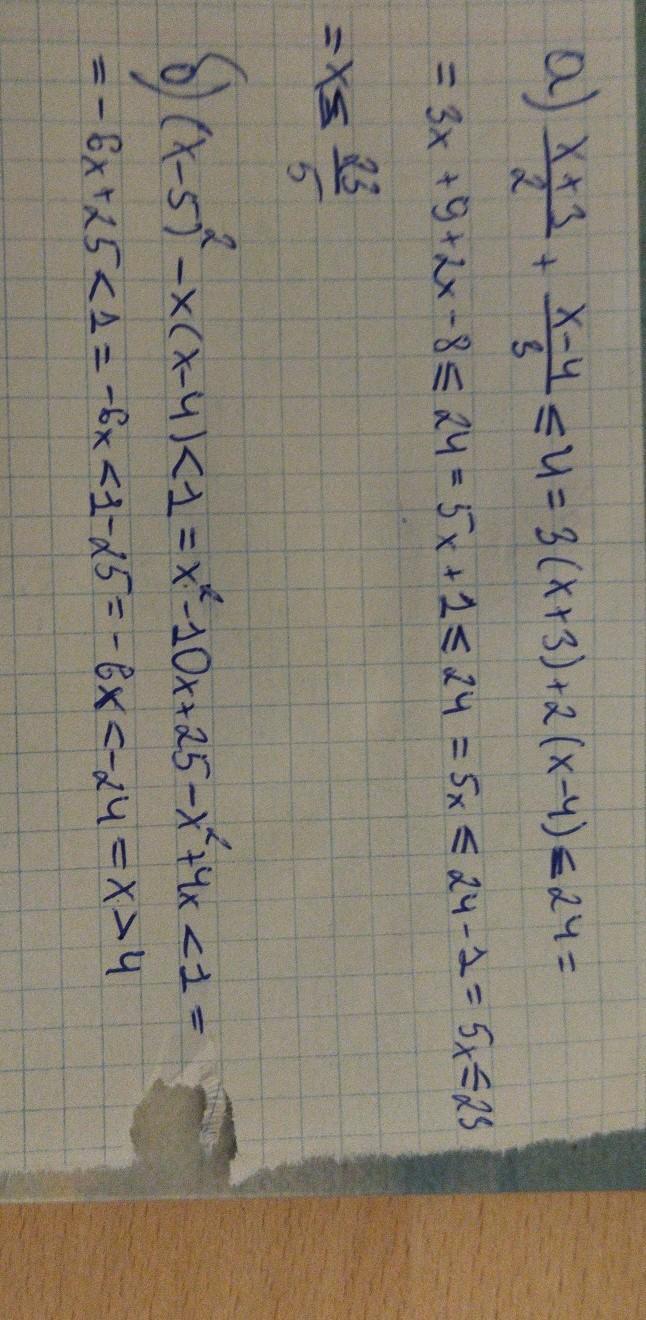 а) x+3/2 + x-4/3 ≤ 4 = 3(x+3)+2(x-4) ≤ 24 =
= 3x+9+2x-8 ≤ 24 = 5x+1 ≤ 24 = 5x ≤ 24-1 = 5x ≤ 23
= x ≤ 23/5
б) (x-5)² - x(x-4) < 1 = x²-10x+25-x²+4x < 1 =
= -6x+25 < 1 = -6x < 1-25 = -6x < -24 = x > 4